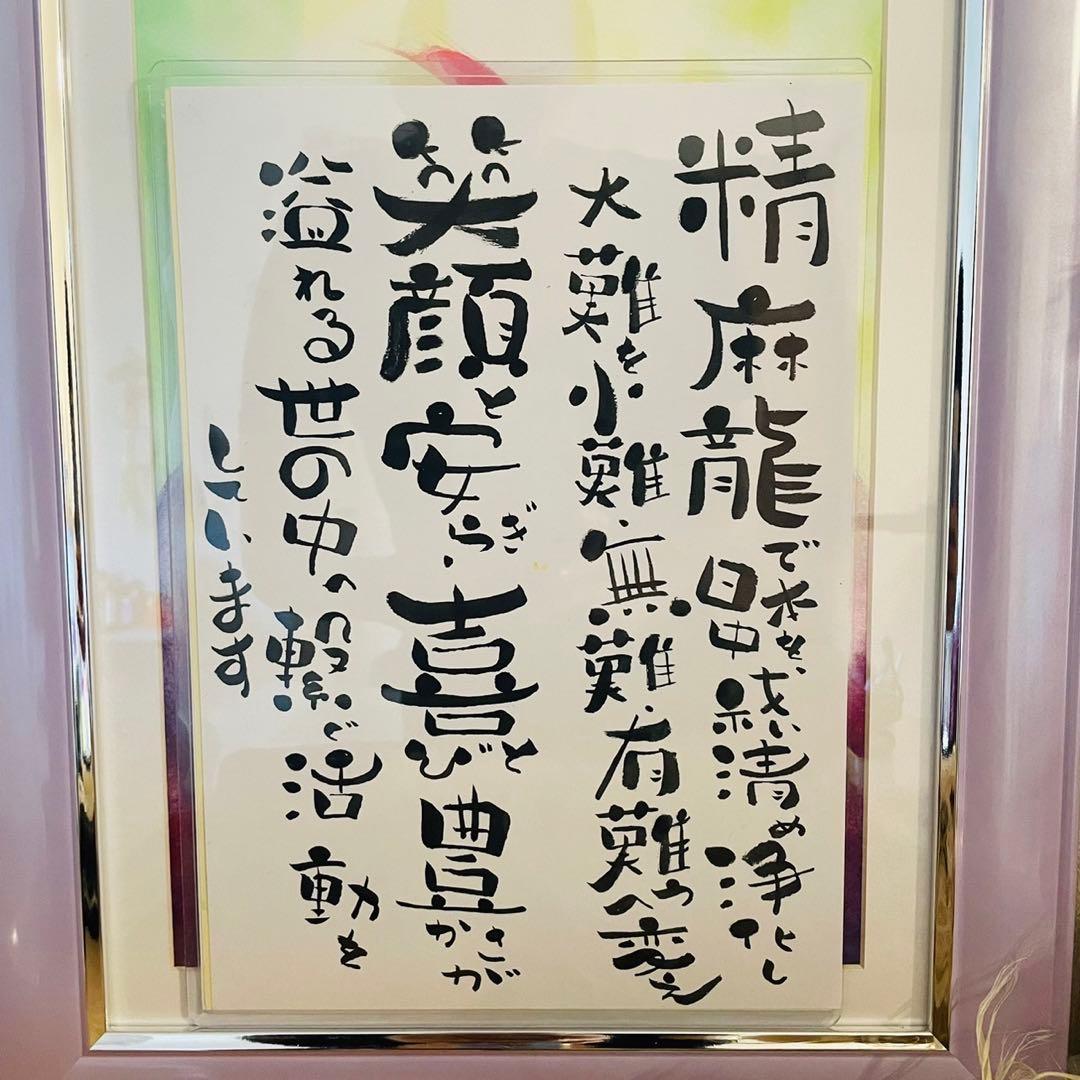 精麻龍で 清め浄化し
大難を小難・無難・有難へ変え
笑顔と安らぎ、喜びと豊かさが
溢れる世の中へ繋ぐ活動を
しています